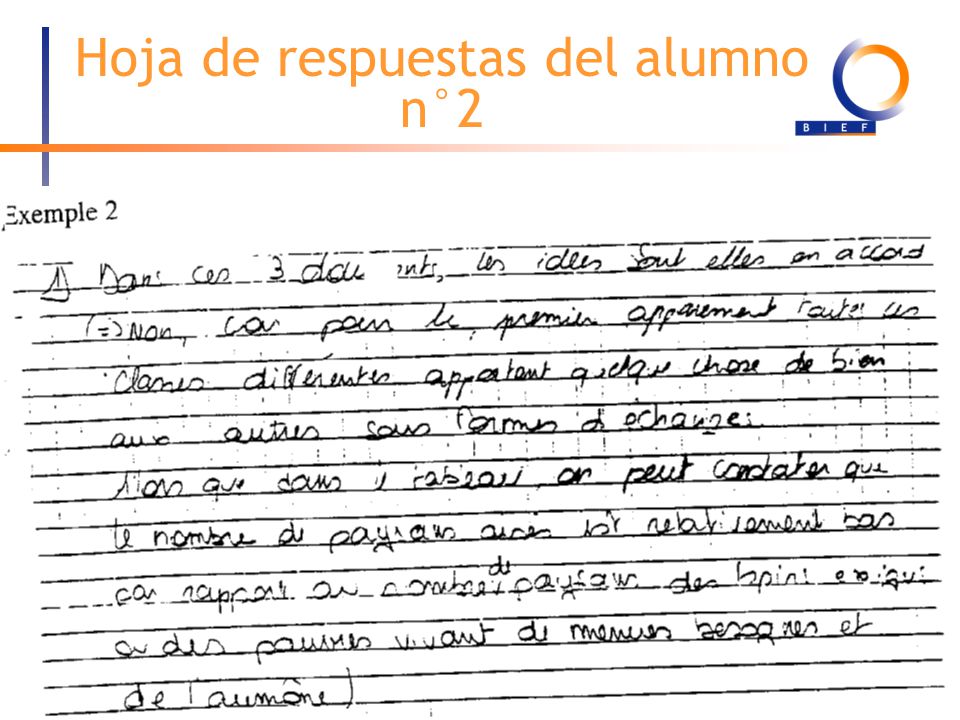 Hoja de respuestas del alumno
n°2
B I E F
Exemple 2
1) Dans ces 3 les idées sont elles en accord
(=) Non, car pour le premier apparement toutes ces
classes différentes apportent quelque chose de bien
aux autres sous formes d'échange.
que dans le tableau, on peut constater que
le nombre de paysans aisés est relativement bas
par rapport au nombre de paysans des
ou des pauvres vivant de menues besognes et
de l'aumône)